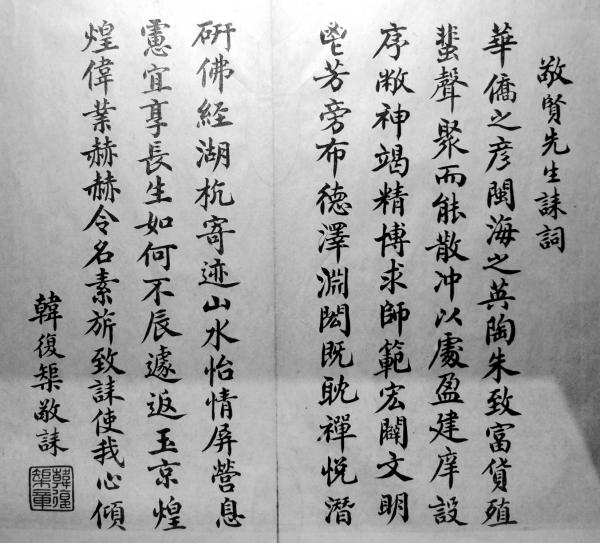 敬賢先生誄詞
華僑之彦閩海之英陶朱致富貨殖
蜚聲聚而能散冲以處盈建庠設
序敝神竭精博求師範宏闢文明
鬯芳旁布德澤淵閎既耽禪悦潛
研佛經湖杭寄迹山水怡情屏營息
慮宜享長生如何不辰遽返玉京煌
煌偉業赫赫令名素旂致誄使我心傾
韓復榘敬誄
韓復榘章